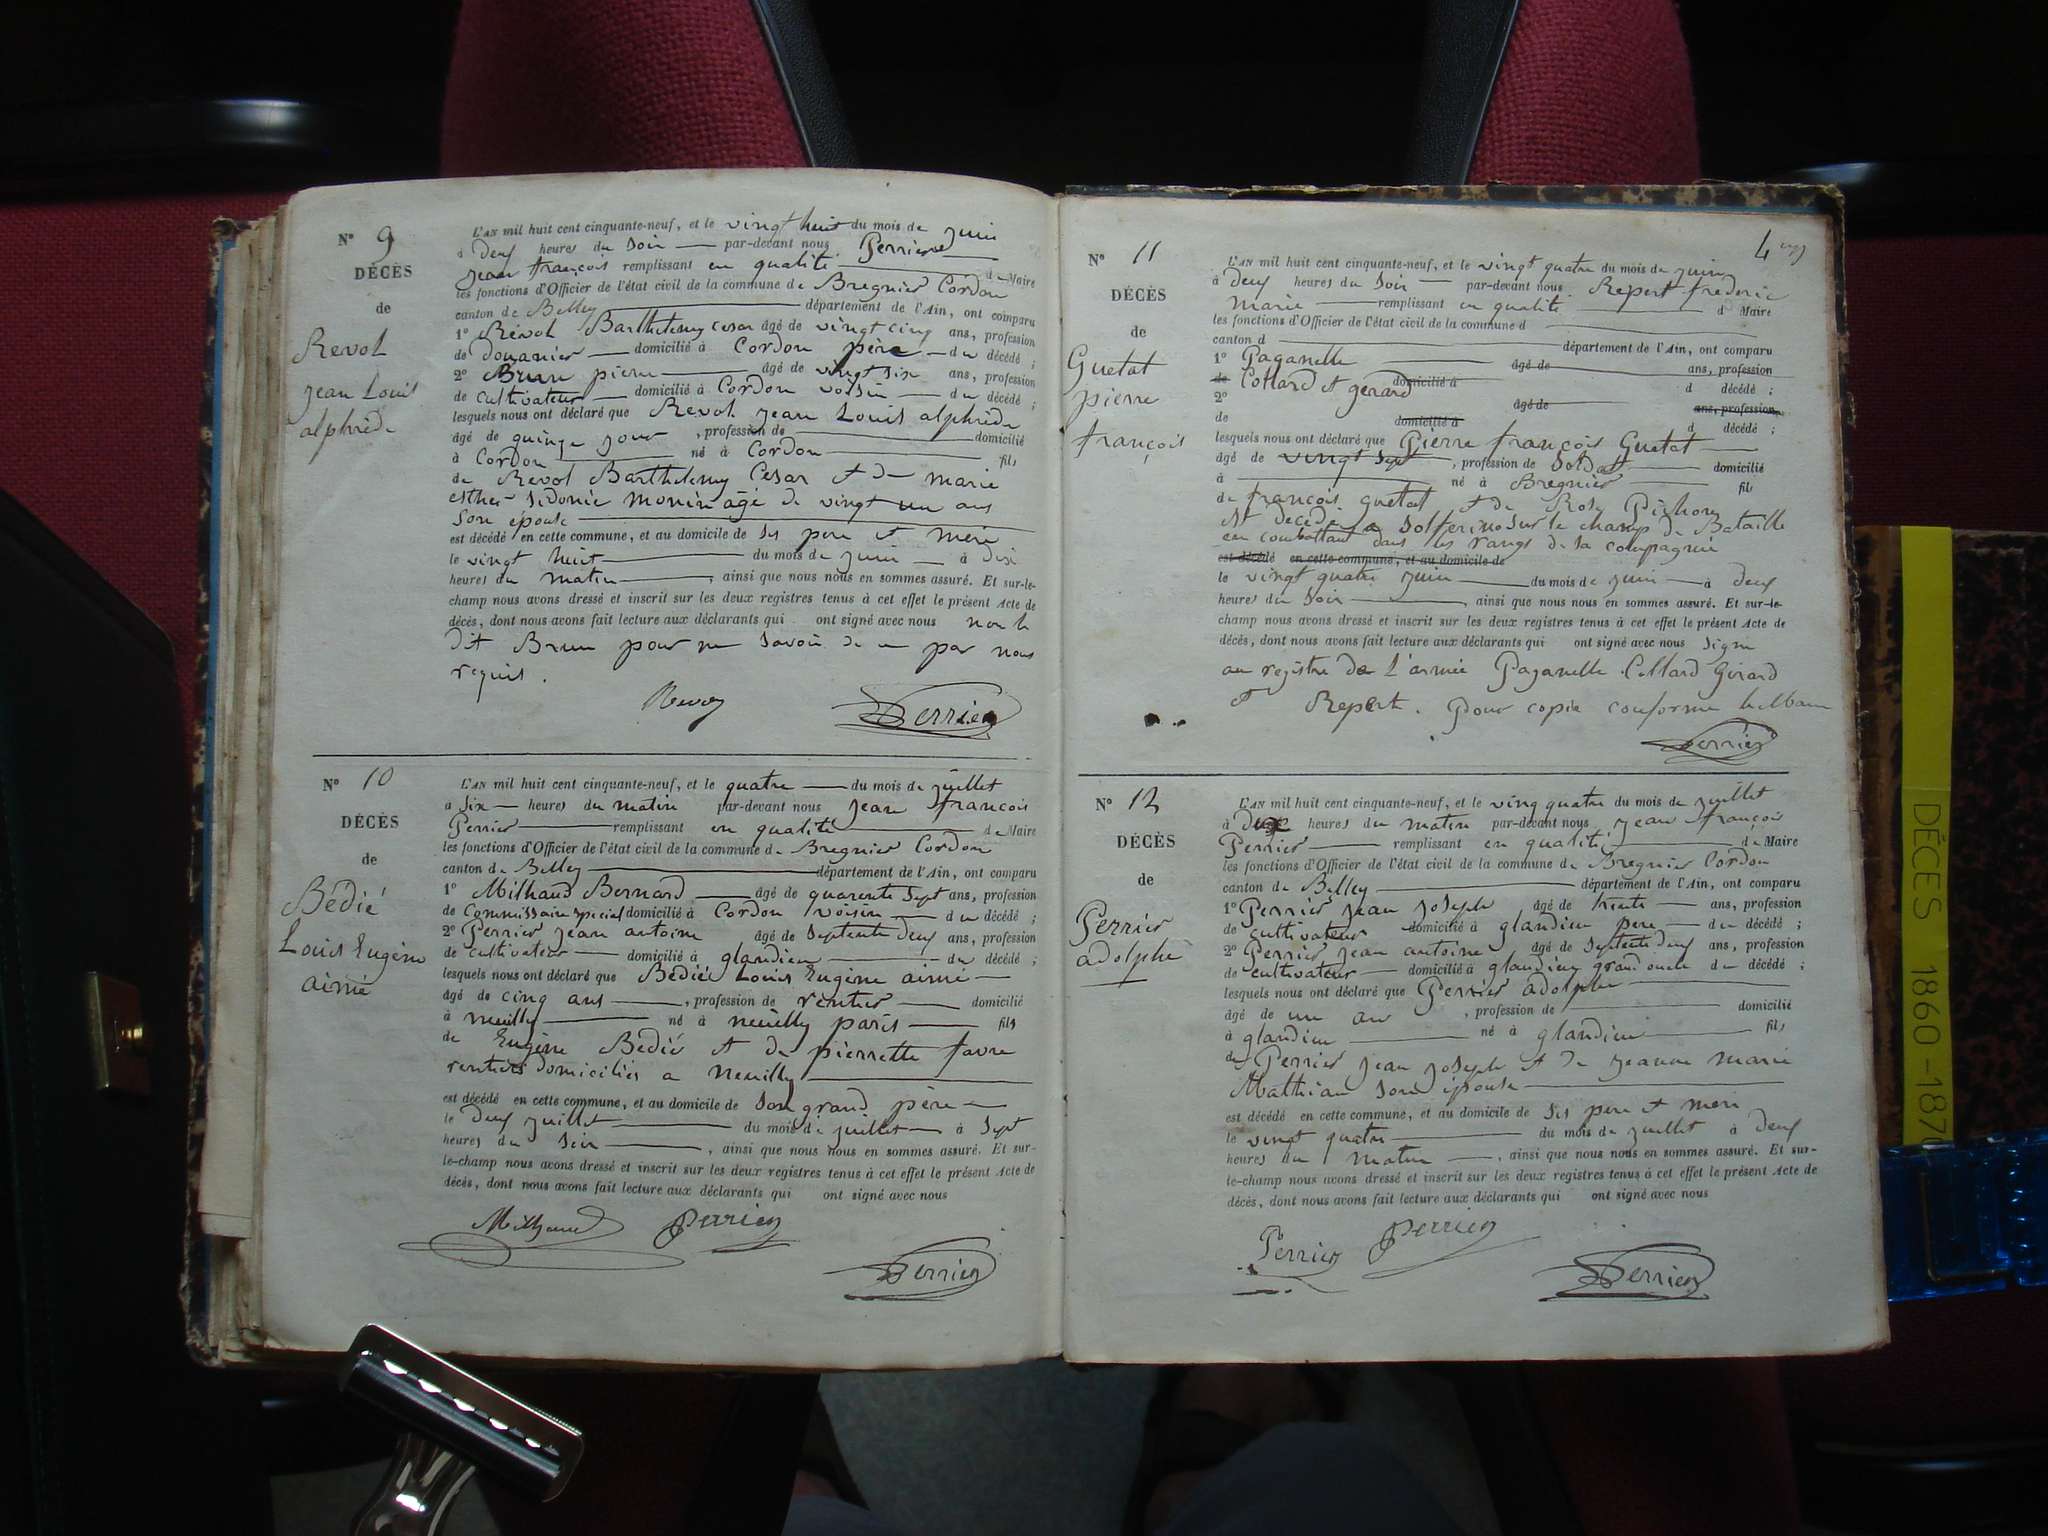 N° 9
DÉCÈS
de
Revol
jean Louis
alphrède
L'AN mil huit cent cinquante-neuf, et le vingt huit du mois de juin
à deux heures du soir par-devant nous Perrier
jean françois remplissant en qualité de Maire
les fonctions d'Officier de l'état civil de la commune de Bregnier Cordon
canton de Belley département de l'Ain, ont comparu
1° Revol Barthelemy cesar âgé de vingt cinq ans, profession
de douanier domicilié à Cordon père du décédé ;
2° Brun pierre âgé de vingt six ans, profession
de cultivateur domicilié à Cordon voisin du décédé ;
lesquels nous ont déclaré que Revol jean Louis alphrède
âgé de quinze jour , profession de domicilié
à Cordon né à Cordon fils
de Revol Barthelemy Cesar et de marie
esther sidonie monin âgé de vingt un ans
son épouse
est décédé en cette commune, et au domicile de ses pere et mere
le vingt huit du mois de juin à dix
heures du matin , ainsi que nous nous en sommes assuré. Et sur-le-
champ nous avons dressé et inscrit sur les deux registres tenus à cet effet le présent Acte de
décès, dont nous avons fait lecture aux déclarants qui ont signé avec nous non le
dit Brun pour ne savoir de ce par nous
requis.
Perrier
N° 10
DÉCÈS
de
Bédié
Louis Eugène
aimé
L'AN mil huit cent cinquante-neuf, et le quatre du mois de juillet
à six heures du matin par-devant nous jean francois
Perrier remplissant en qualité de Maire
les fonctions d'Officier de l'état civil de la commune de Bregnier Cordon
canton de Belley département de l'Ain, ont comparu
1° Milhaud Bernard âgé de quarente sept ans, profession
de Commissaire special domicilié à Cordon voisin du décédé ;
2° Perrier jean antoine âgé de septente deux ans, profession
de cultivateur domicilié à glandieu du décédé ;
lesquels nous ont déclaré que Bédié Louis Eugène aimé
âgé de cinq ans , profession de rentier domicilié
à neuilly né à neuilly paris fils
de Eugène Bédié et de pierrette favre
rentiers domiciliés a Neuilly
est décédé en cette commune, et au domicile de son grand père
le deux juillet du mois de juillet à sept
heures du soir , ainsi que nous nous en sommes assuré. Et sur-
le-champ nous avons dressé et inscrit sur les deux registres tenus à cet effet le présent Acte de
décès, dont nous avons fait lecture aux déclarants qui ont signé avec nous
Milhaud Perrier
Perrier
4
N° 11
DÉCÈS
de
Guetat
pierre
françois
L'AN mil huit cent cinquante-neuf, et le vingt quatre du mois de juin
à deux heures du soir par-devant nous Repert frederic
Marie remplissant en qualité d Maire
les fonctions d'Officier de l'état civil de la commune d
canton d département de l'Ain, ont comparu
1° Paganelle âgé de ans, profession
de Collard et gerard domicilié à d décédé ;
2° âgé de ans, profession
de domicilié à d décédé ;
lesquels nous ont déclaré que Pierre françois Guetat
âgé de vingt sept , profession de soldat domicilié
à né à Bregnier fils
de françois guetat et de Rose Pichon
est décédé a Solferino sur le champ de Bataille
en combattant dans les rangs de sa compagnie
est décédé en cette commune, et au domicile de
le vingt quatre juin du mois de juin à deux
heures du soir , ainsi que nous nous en sommes assuré. Et sur-le-
champ nous avons dressé et inscrit sur les deux registres tenus à cet effet le présent Acte de
décès, dont nous avons fait lecture aux déclarants qui ont signé avec nous signe
au registre de L'armée Paganelle Collard Girard
et Repert. Pour copie conforme le Maire
Perrier
N° 12
DÉCÈS
de
Perrier
adolphe
L'AN mil huit cent cinquante-neuf, et le ving quatre du mois de juillet
à heures du matin par-devant nous jean françois
Perrier remplissant en qualité de Maire
les fonctions d'Officier de l'état civil de la commune de Bregnier Cordon
canton de Belley département de l'Ain, ont comparu
1° Perrier jean joseph âgé de trente ans, profession
de cultivateur domicilié à glandieu pere du décédé ;
2° Perrier jean antoine âgé de septente deux ans, profession
de cultivateur domicilié à glandieu grand oncle du décédé ;
lesquels nous ont déclaré que Perrier adolphe
âgé de un an , profession de domicilié
à glandieu né à glandieu fils
de Perrier jean joseph et de jeanne marie
Mathian son épouse
est décédé en cette commune, et au domicile de ses pere et mere
le vingt quatre du mois de juillet à deux
heures du matin , ainsi que nous nous en sommes assuré. Et sur-
le-champ nous avons dressé et inscrit sur les deux registres tenus à cet effet le présent Acte de
décès, dont nous avons fait lecture aux déclarants qui ont signé avec nous
Perrier Perrier
Perrier
DÉCES 1860-187